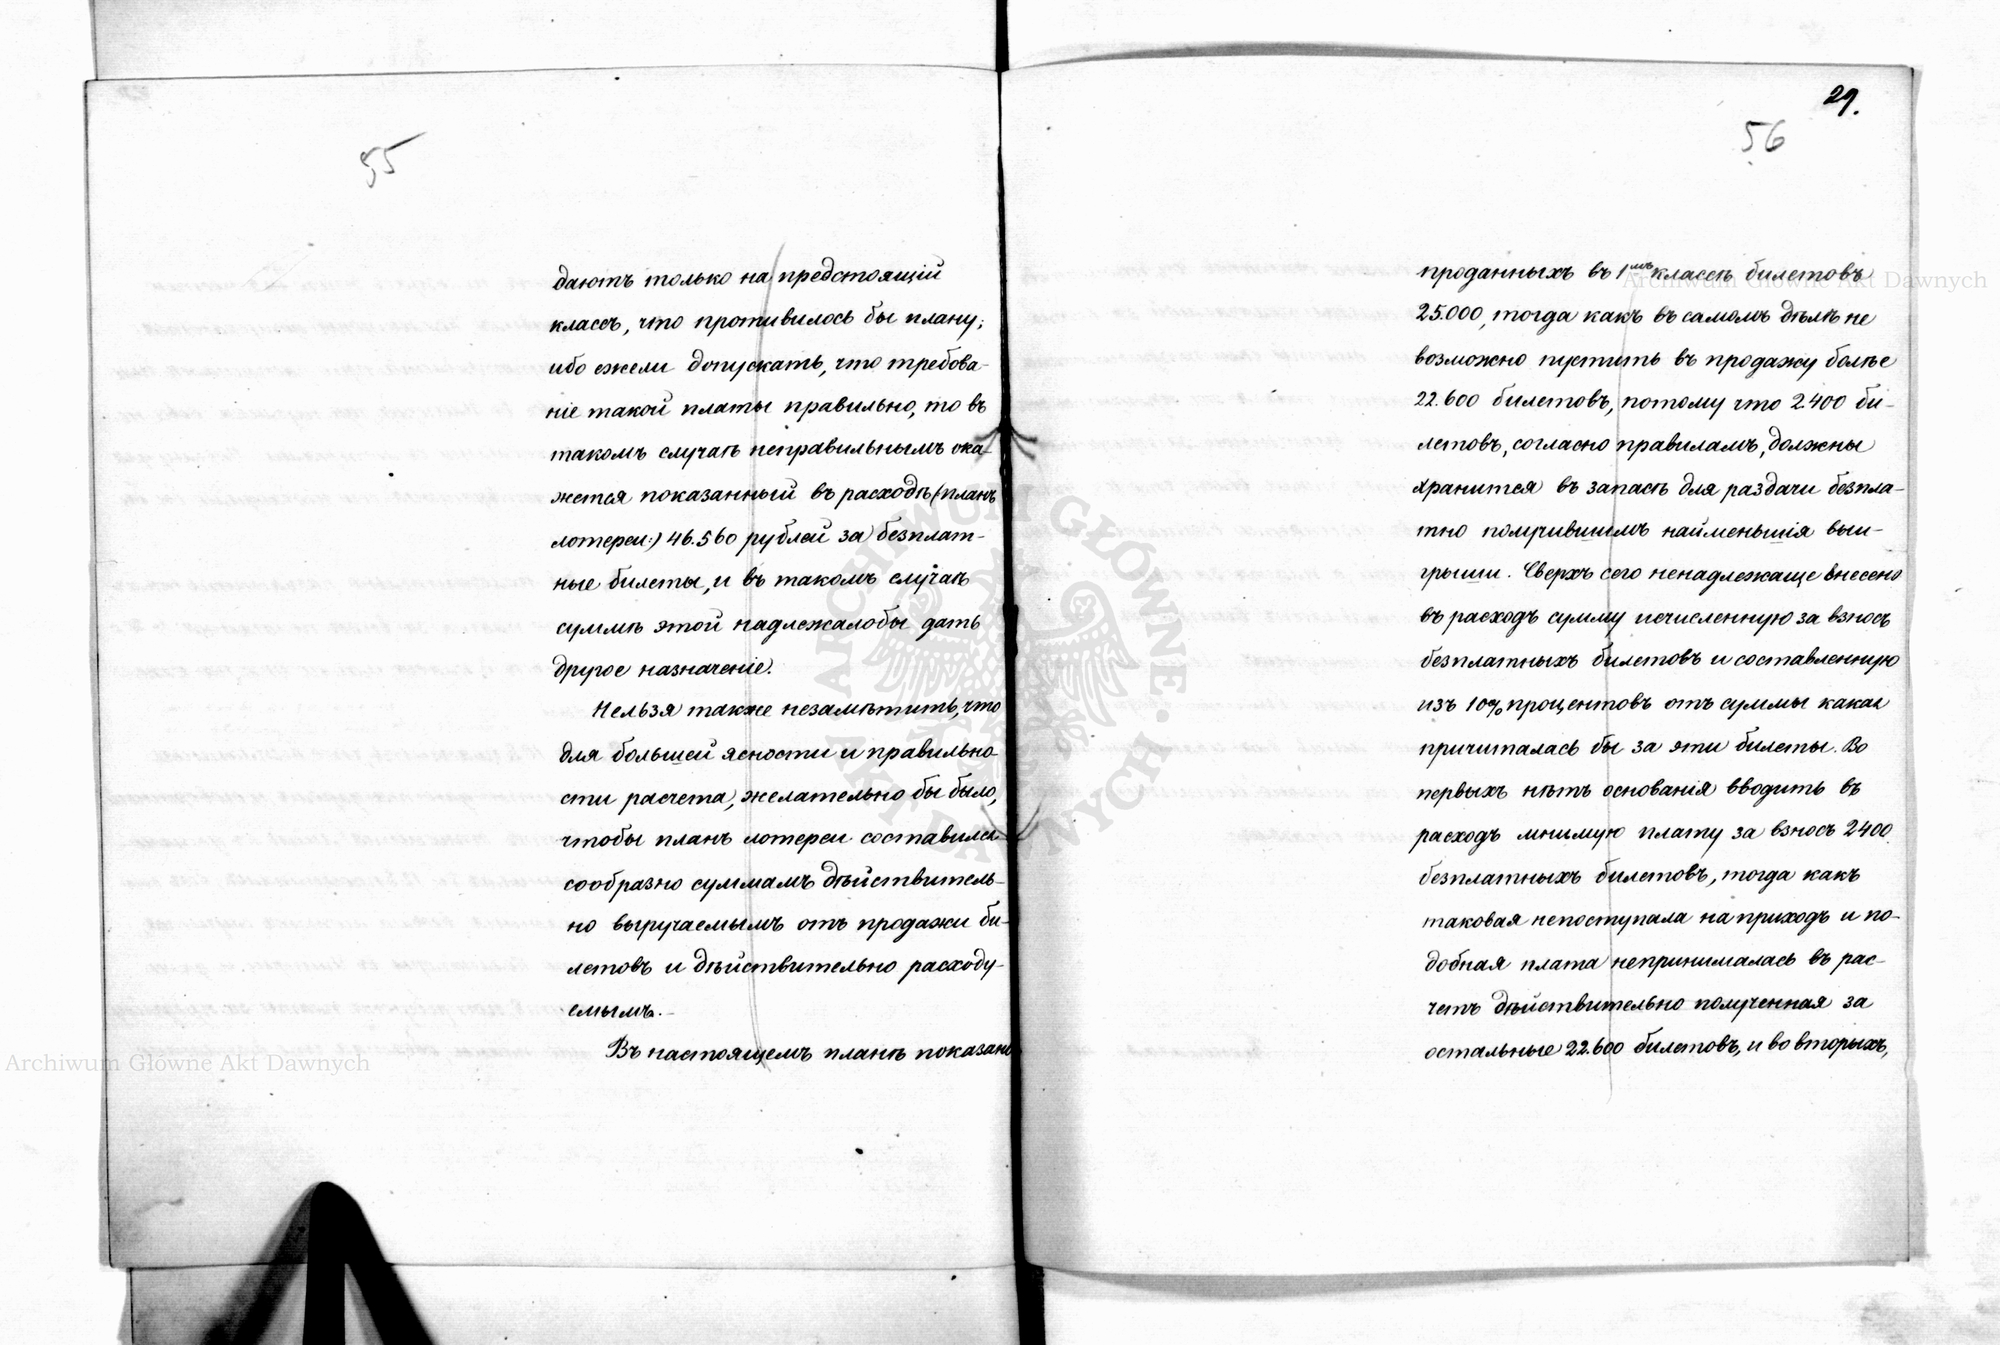 55
даютъ только на предстоящій
классъ, что противилось бы плану;
ибо ежели допускать, что требова-
ніе такой платы правильно, то въ
такомъ случаѣ неправильнымъ ока-
жется показанный въ расходѣ (планъ
лотереи:) 46.560 рублей за безплат-
ные билеты, и въ такомъ случаѣ
суммѣ этой надлежалобы дать
другое назначеніе.
Нельзя также незамѣтить, что
для большей ясности и правильно-
сти расчета, желательно бы было,
чтобы планъ лотереи составился
сообразно суммамъ дѣйствитель-
но выручаемымъ отъ продажи би-
летовъ и дѣйствительно расходу-
емымъ.-
Въ настоящемъ планѣ показано
29.
56
проданныхъ въ 1мъ классѣ билетовъ
25.000, тогда какъ въ самомъ дѣлѣ не
возможно пустить въ продажу болѣе
22.600 билетовъ, потому что 2.400 би-
летовъ, согласно правиламъ, должны
хранится въ запасѣ для раздачи безпла-
тно получившимъ найменьшія выи-
грыши. Сверхъ сего ненадлежаще внесено
въ расходъ сумму исчисленную за взносъ
безплатныхъ билетовъ и составленную
изъ 10% процентовъ отъ суммы какая
причиталась бы за эти билеты. Во
первыхъ нѣтъ основанія вводить въ
расходъ мнимую плату за взносъ 2400
безплатныхъ билетовъ, тогда какъ
таковая непоступала на приходъ и по-
добная плата непринималась въ рас-
четъ дѣйствительно полученная за
остальные 22.600 билетовъ, и во вторыхъ,
Archiwum Główne Akt Dawnych
Archiwum Główne Akt Dawnych
ARCHIWUM GŁÓWNE AKT DAWNYCH